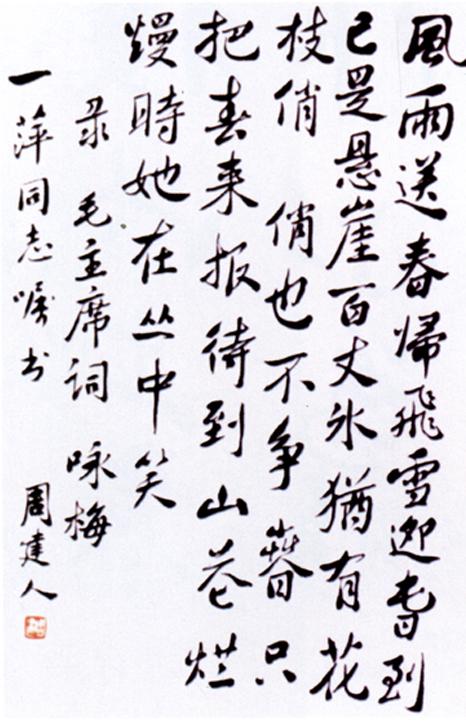 風雨送春歸飛雪迎春到
已是悬崖百丈氷猶有花
枝俏 俏也不争春只
把春来报待到山花烂
熳時她在丛中笑
录 毛主席词 咏梅
一萍同志嘱书
周建人